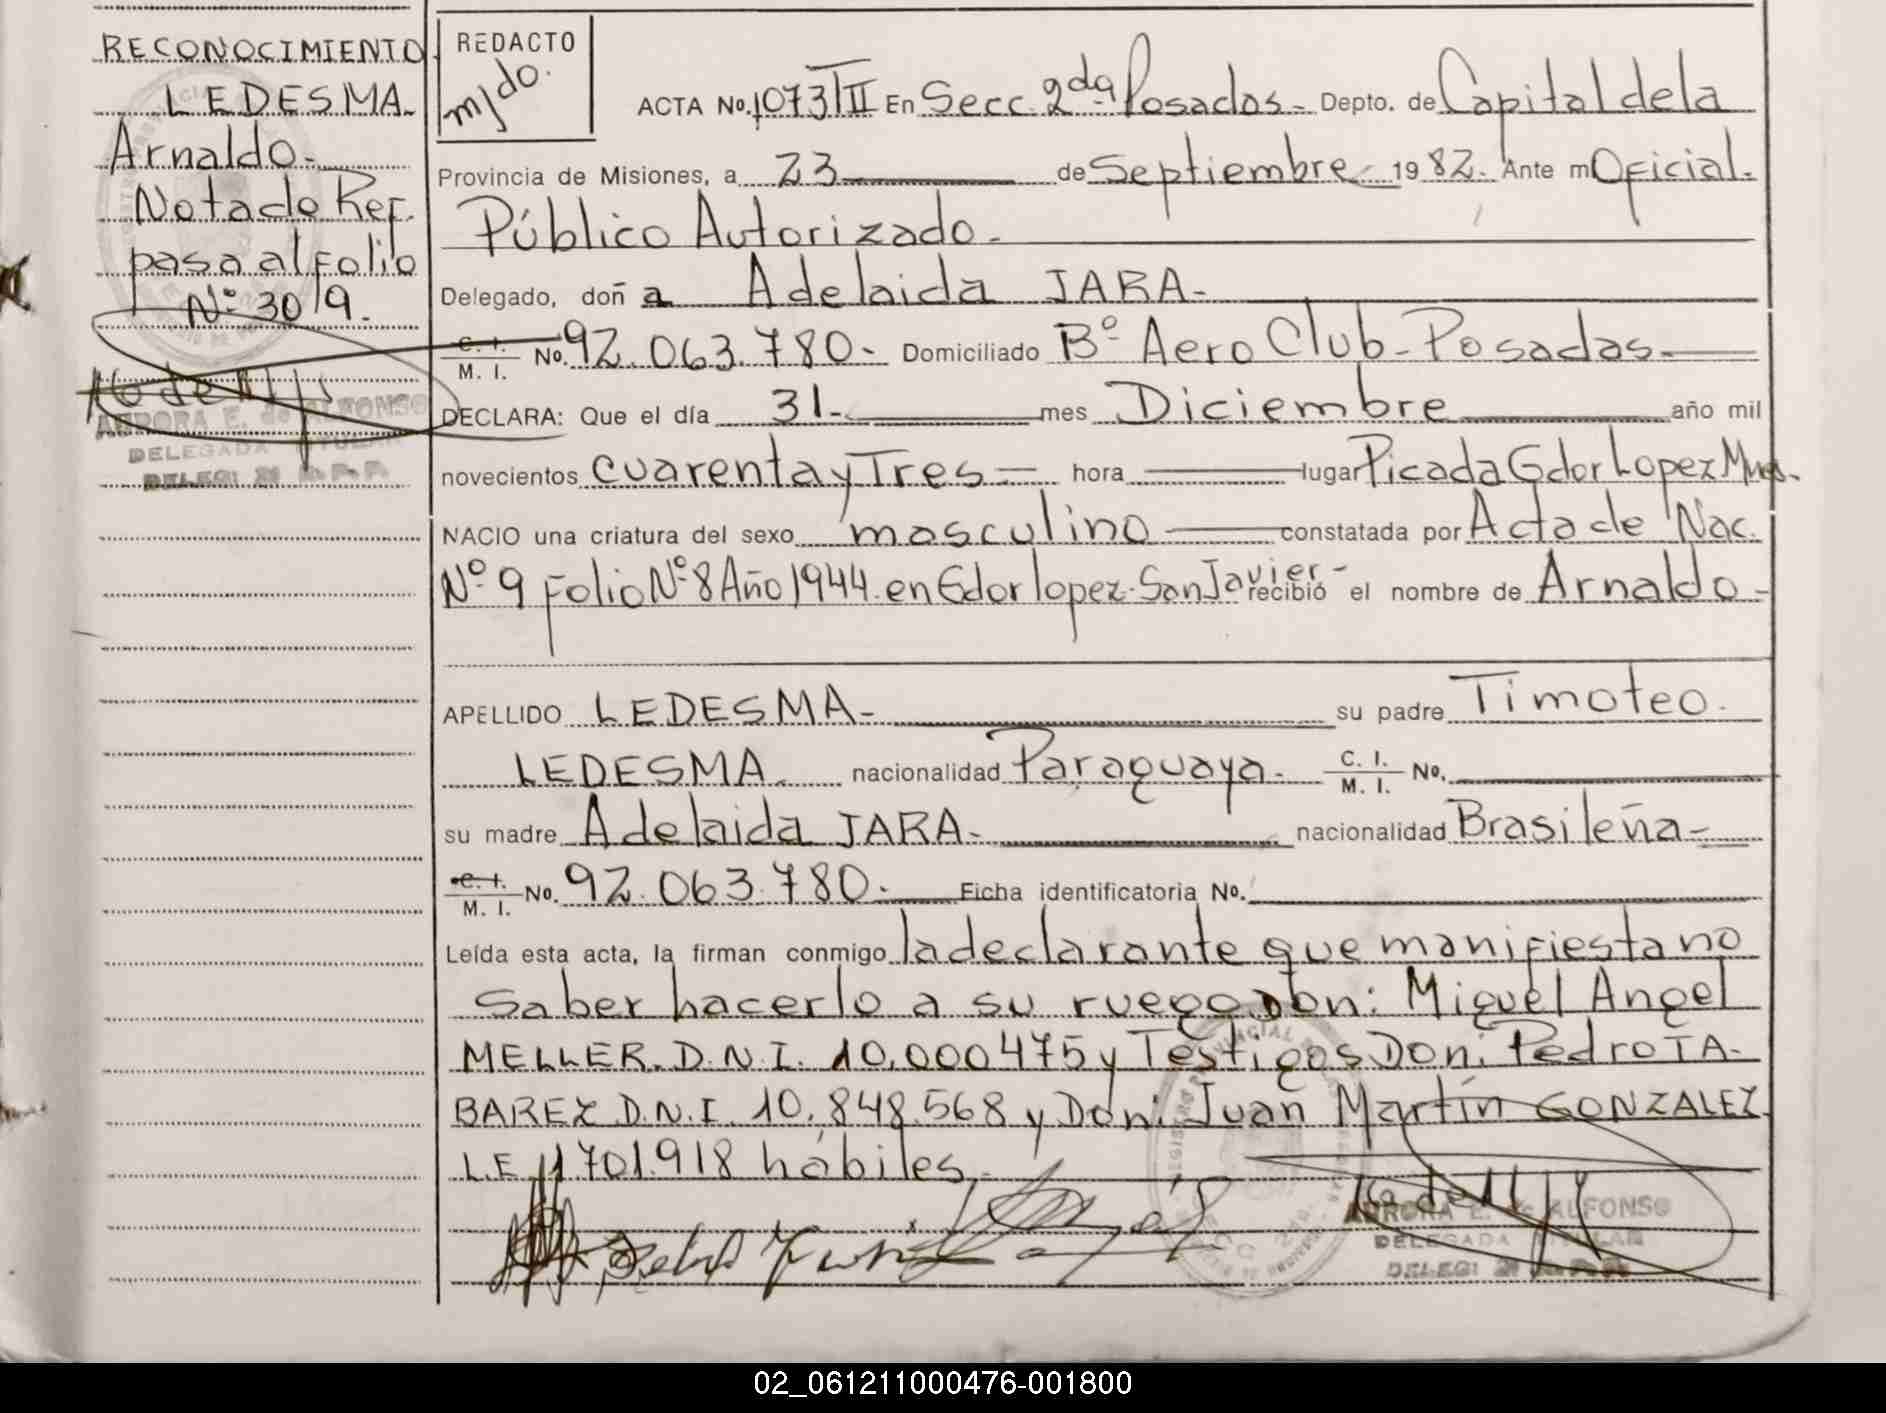 RECONOCIMIENTO
LEDESMA.
Arnaldo.-
Nota de Ref.
pasa al folio
Nº 30/9.
AURORA E. de ALFONSO
DELEGADA TITULAR
REDACTO
ACTA No. 1073/TII En Secc. 2da Posadas.- Depto. de Capital de la
Provincia de Misiones, a 23 de Septiembre 1982. Ante m Oficial.
Público Autorizado.-
Delegado, doña Adelaida JARA-
C. I.
M. I. No. 92.063.780.- Domiciliado Bº Aero Club-Posadas.-
DECLARA: Que el día 31.- mes Diciembre año mil
novecientos cuarenta y Tres- hora lugar Picada Gdor Lopez Mnes.
NACIO una criatura del sexo masculino constatada por Acta de Nac.
Nº 9 Folio Nº 8 Año 1944. en Gdor lopez-San Javier- recibió el nombre de Arnaldo-
APELLIDO LEDESMA- su padre Timoteo.
LEDESMA. nacionalidad Paraguaya. C. I.
M. I. No.
su madre Adelaida JARA- nacionalidad Brasileña-
C. I.
M. I. No. 92.063.780.- Ficha identificatoria No.
Leída esta acta, la firman conmigo la declarante que manifiesta no
saber hacerlo a su ruego Don: Miguel Angel
MELLER. D.N.I. 10.000475 y Testigos Don: Pedro TA-
BAREZ D.N.I. 10.848.568 y Don: Juan Martín GONZALEZ
L.E. 1701.918 hábiles.-
AURORA E. de ALFONSO
DELEGADA TITULAR
02_061211000476-001800